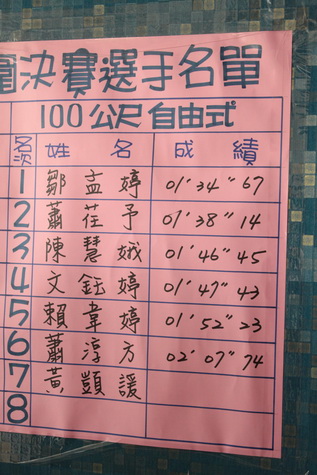 圍決賽選手名單
100公尺自由式
名次 姓名 成績
1 鄒孟婷 01'34"67
2 蕭荏予 01'38"14
3 陳慧娥 01'46"45
4 文鈺婷 01'47"43
5 賴韋婷 01'52"23
6 蕭淳方 02'07"74
7 黃顗諼
8